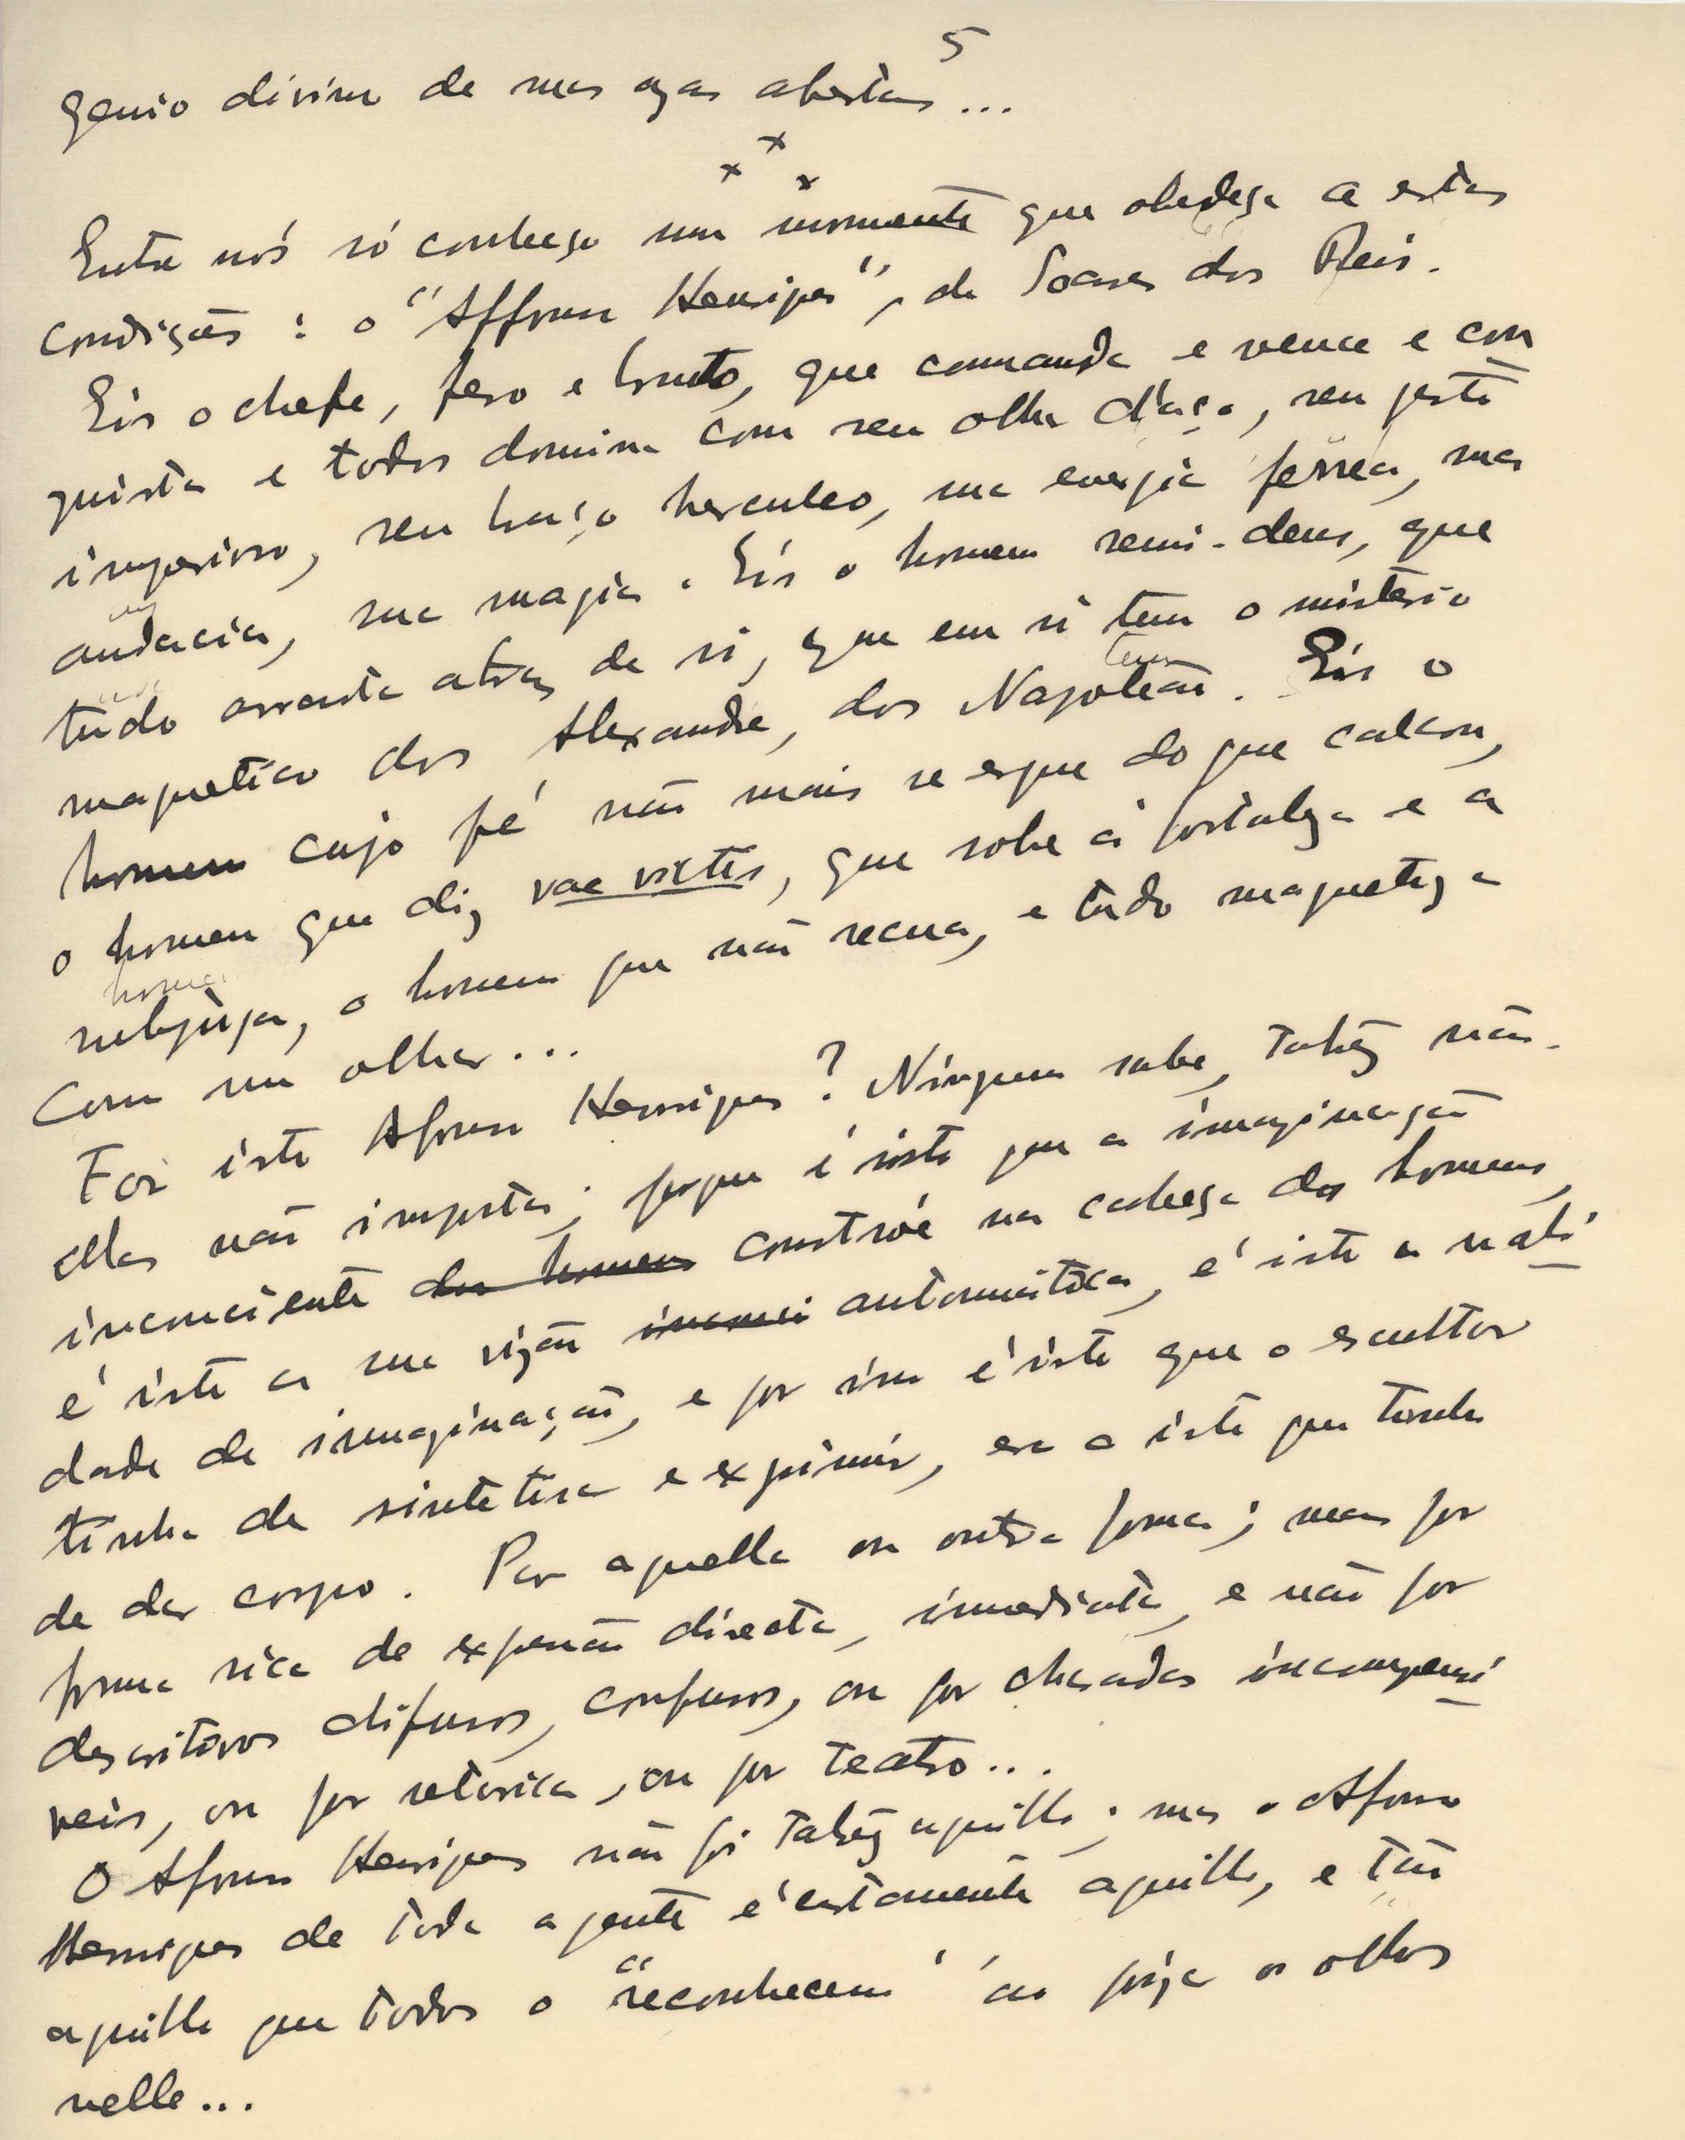 5
genio divino de suas azas abertas...
x x x
Entre nós só conheço um momento que obedeça a estas
condições: o "Affonso Henriques", de Soares dos Reis.
Eis o chefe, fero e bruto, que commanda e vence e con
quista e todos domina com seu olhar d'aço, seu gesto
imperioso, seu braço herculeo, sua energia ferrea, sua
audacia, sua magia. Eis o homem semi-deus, que
tudo arrasta atraz de si, que em si tem o misterio
tem
magnetico dos Alexandre, dos Napoleão. Eis o
homem cujo pé não mais se ergue do que calcou,
o homem que diz vae victis, que sobe á fortaleza e a
homem
subjuga, o homem que não recua, e tudo magnetiza
com um olhar...
Foi isto Afonso Henriques? Ninguem sabe, talvez não.
Mas não importa; porque é isto que a imaginação
inconsciente dos homens constroé na cabeça dos homens,
é isto a sua vizão inconsci automática, é isto a reali
dade da imaginação, e por isso é isto que o escultor
tinha de sintetisar e exprimir, era a isto que tinha
de dar corpo. Por aquella ou outra forma; mas por
forma rica de expressão directa, immediata, e não por
descritivos difusos, confusos, ou por charadas incompensi
veis, ou por retorica, ou por teatro...
O Afonso Henriques não foi talvez aquillo; mas o Afonso
Henriques de toda a gente é certamente aquillo, e tão
aquillo que todos o "reconhecem" ao pôr os olhos
nelle...